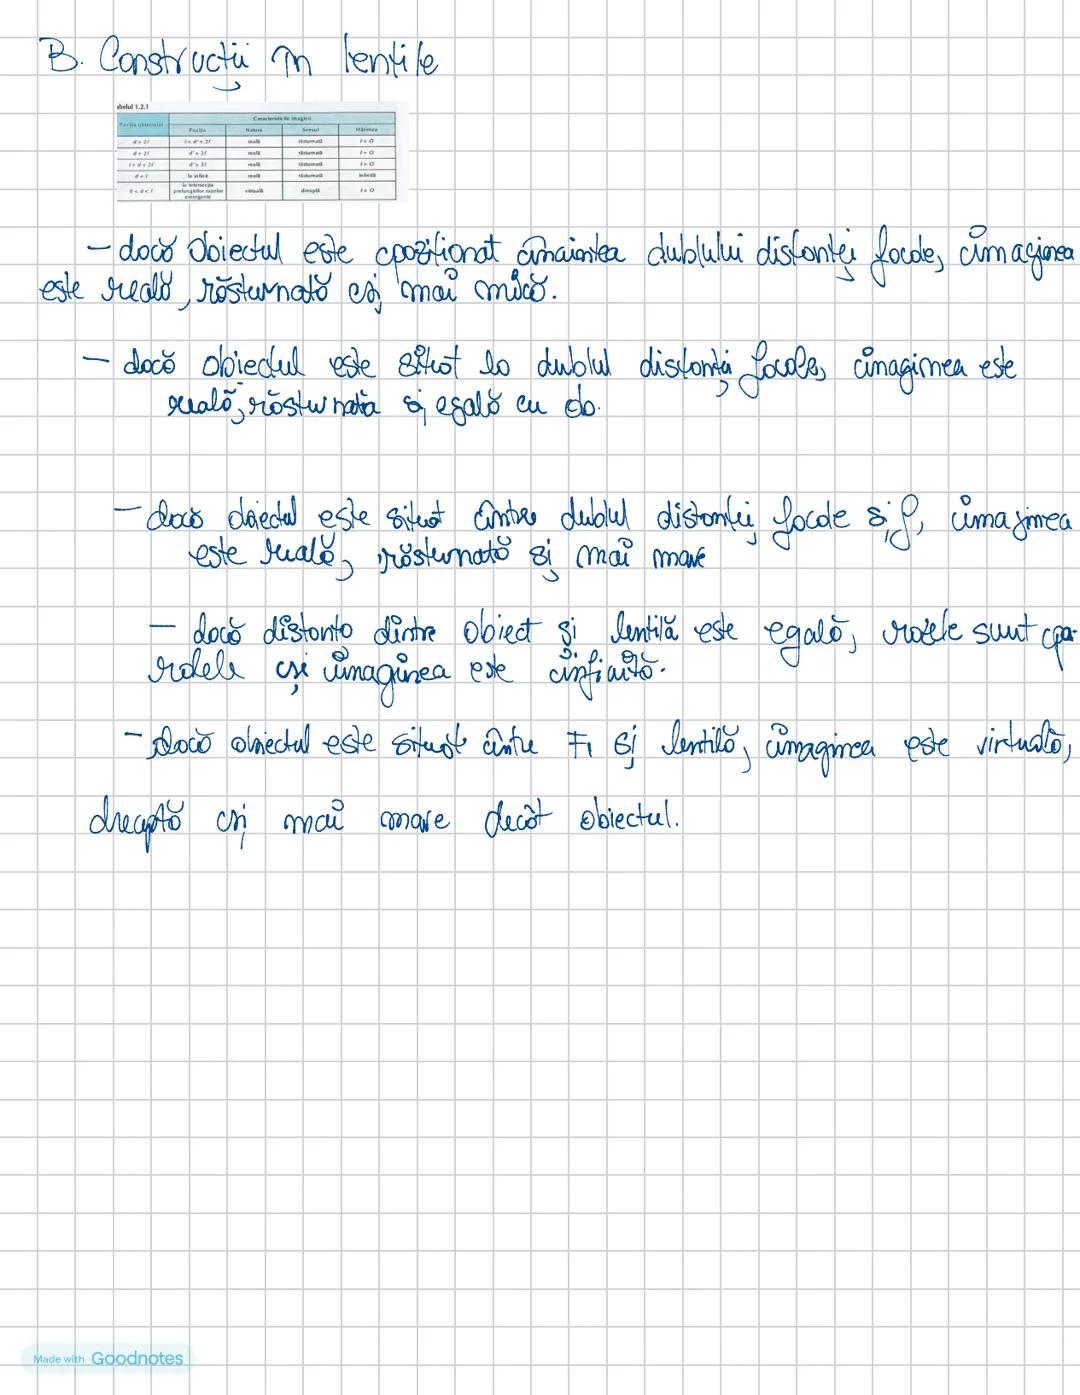 B. Construcții în lentile
abelul 1.2.1
Poziția obiectului
Caracteristicile imaginii
Poziția Natura Sensul Mărimea
d > 2f f < d' < 2f reală răsturnată I < O
d = 2f d' = 2f reală răsturnată I = O
f < d < 2f d' > 2f reală răsturnată I > O
d = f la infinit reală răsturnată infinită
0 < d < f la intersecția prelungirilor razelor emergente virtuală dreaptă I > O
- dacă obiectul este poziționat înaintea dublului distanței focale, imaginea
este reală, răsturnată și mai mică.
- dacă obiectul este situat la dublul distanței focale, imaginea este
reală, răsturnată și egală cu ob.
- dacă obiectul este situat între dublul distanței focale și f, imaginea
este reală, răsturnată și mai mare
- dacă distanța dintre obiect și lentilă este egală, razele sunt pa-
ralele și imaginea este infinită.
- Dacă obiectul este situat între F1 și lentilă, imaginea este virtuală,
dreaptă și mai mare decât obiectul.
Made with Goodnotes